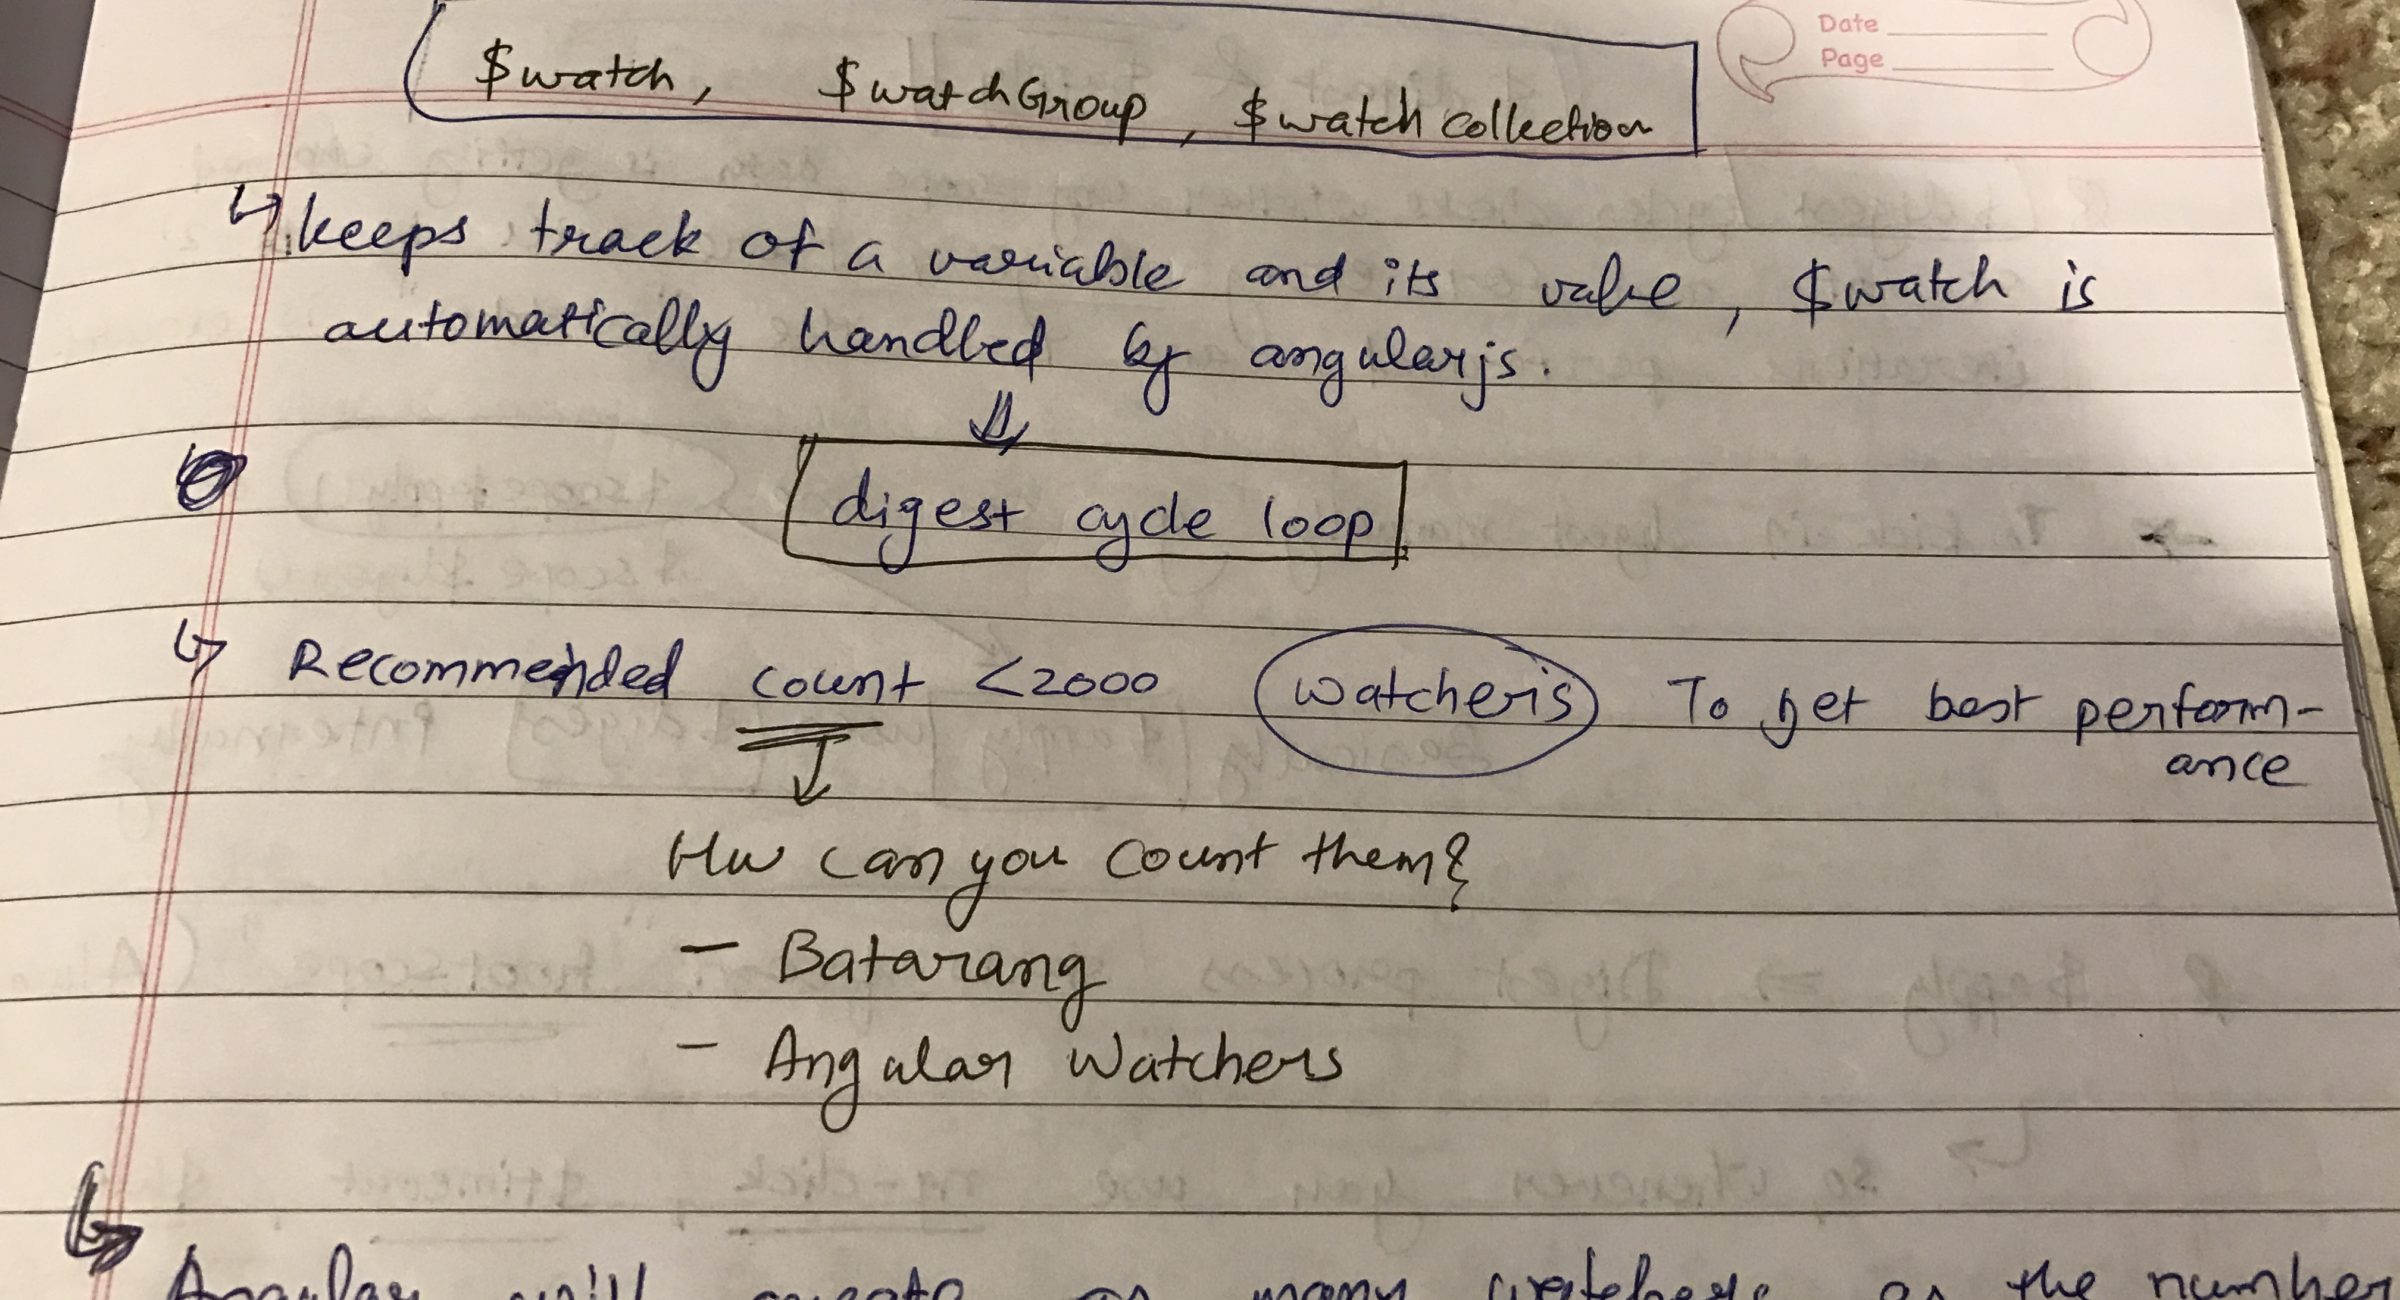 Date
Page
$watch, $watchGroup, $watchcollection
↳ keeps track of a variable and its value, $watch is
automatically handled by angularjs.
digest cycle loop
↳ Recommended count <2000 watchers To get best perform-
ance
Hw can you count them?
- Batarang
- Angular Watchers
↳ Angular will create as many watchers as the number